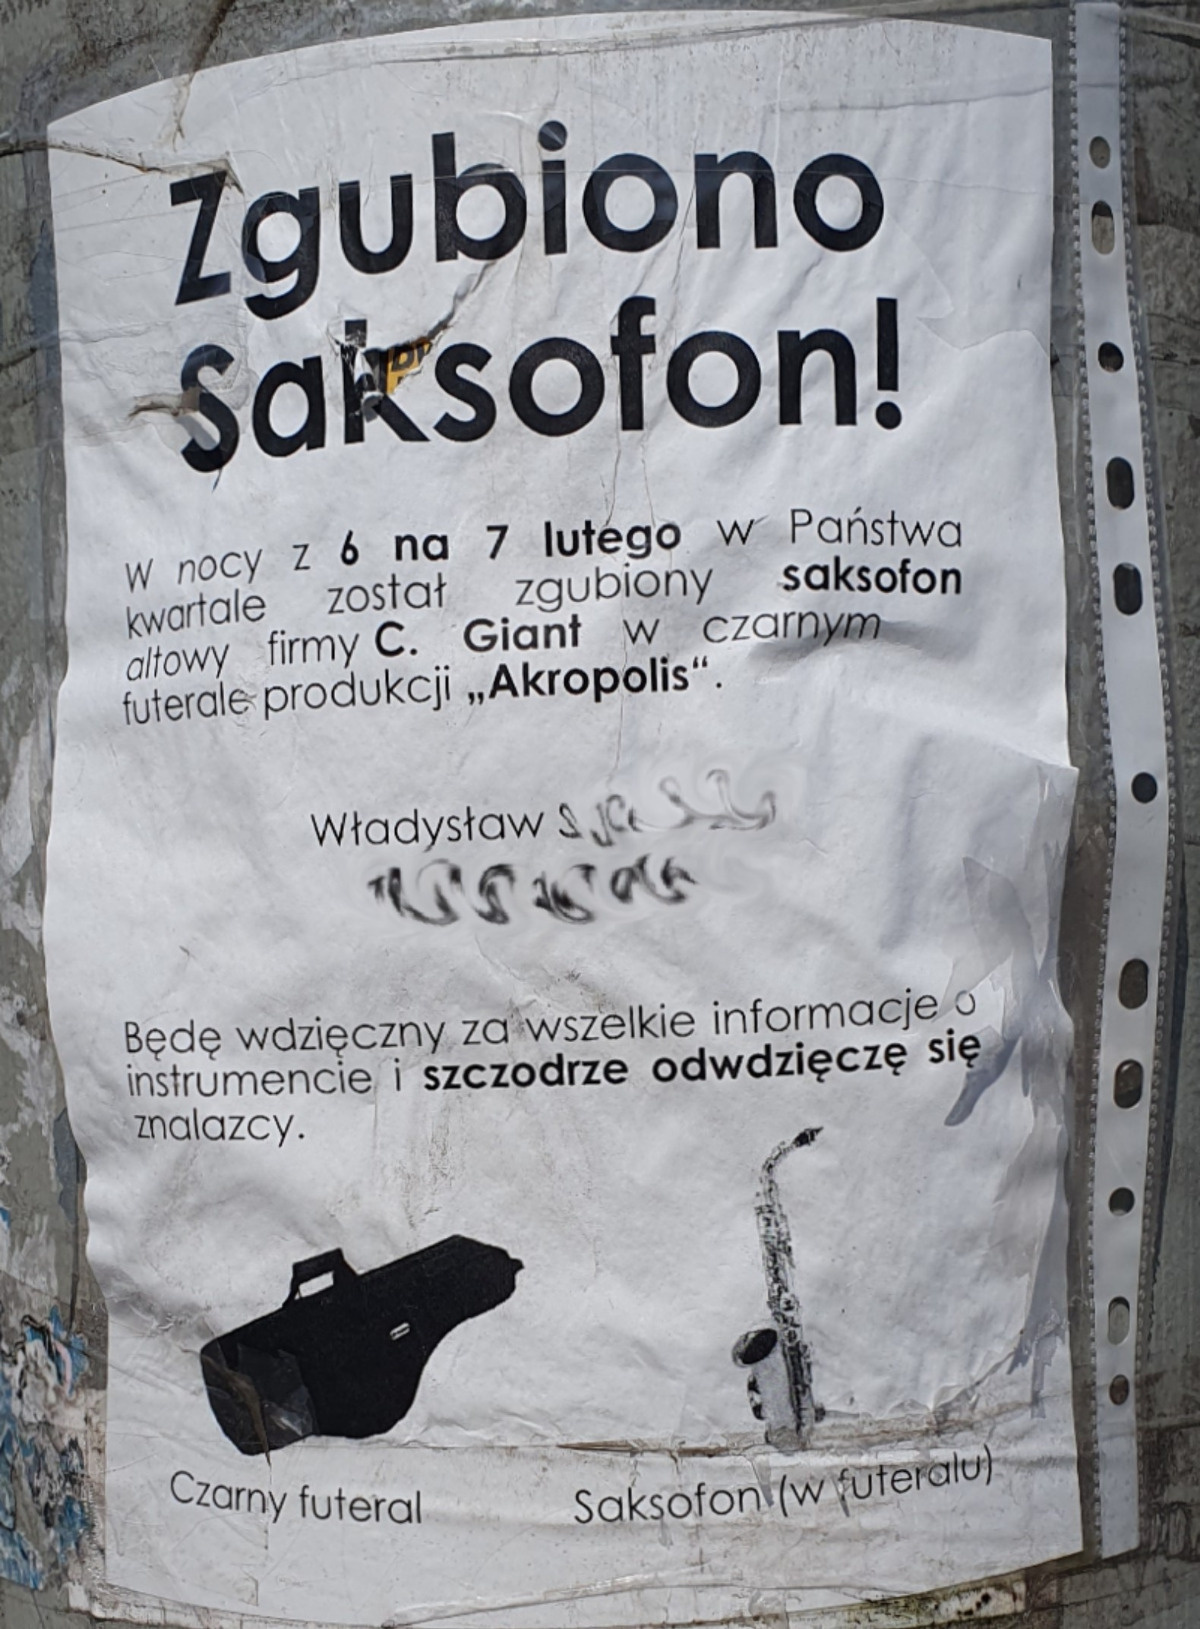 Zgubiono
Saksofon!
W nocy z 6 na 7 lutego w Państwa
kwartale został zgubiony saksofon
altowy firmy C. Giant w czarnym
futerale produkcji „Akropolis“.
Władysław
Będę wdzięczny za wszelkie informacje o
instrumencie i szczodrze odwdzięczę się
znalazcy.
Czarny futeral
Saksofon (w futeralu)